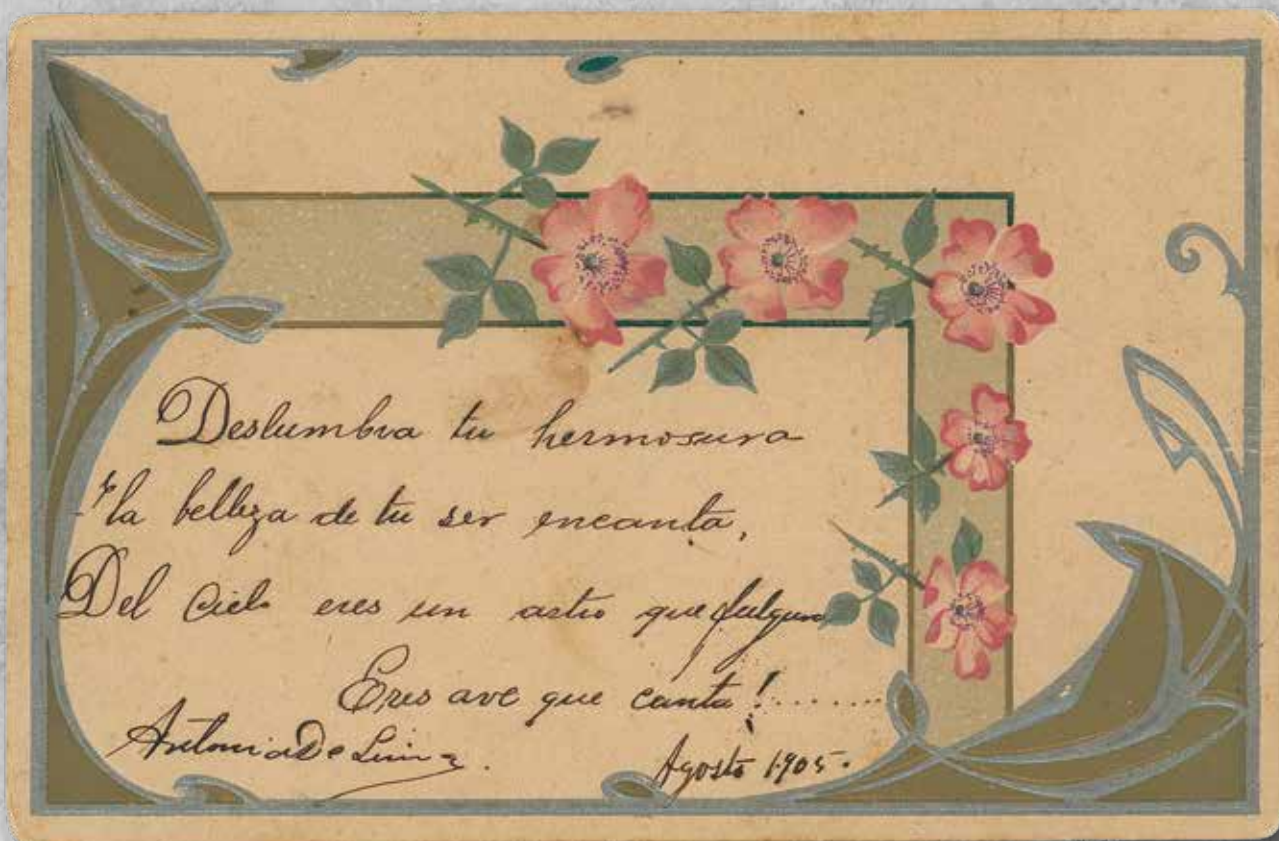 Deslumbra tu hermosura
Y la belleza de tu ser encanta,
Del Cielo eres un astro que fulgura
Eres ave que canta!........
Antonia De
Agosto 1905.